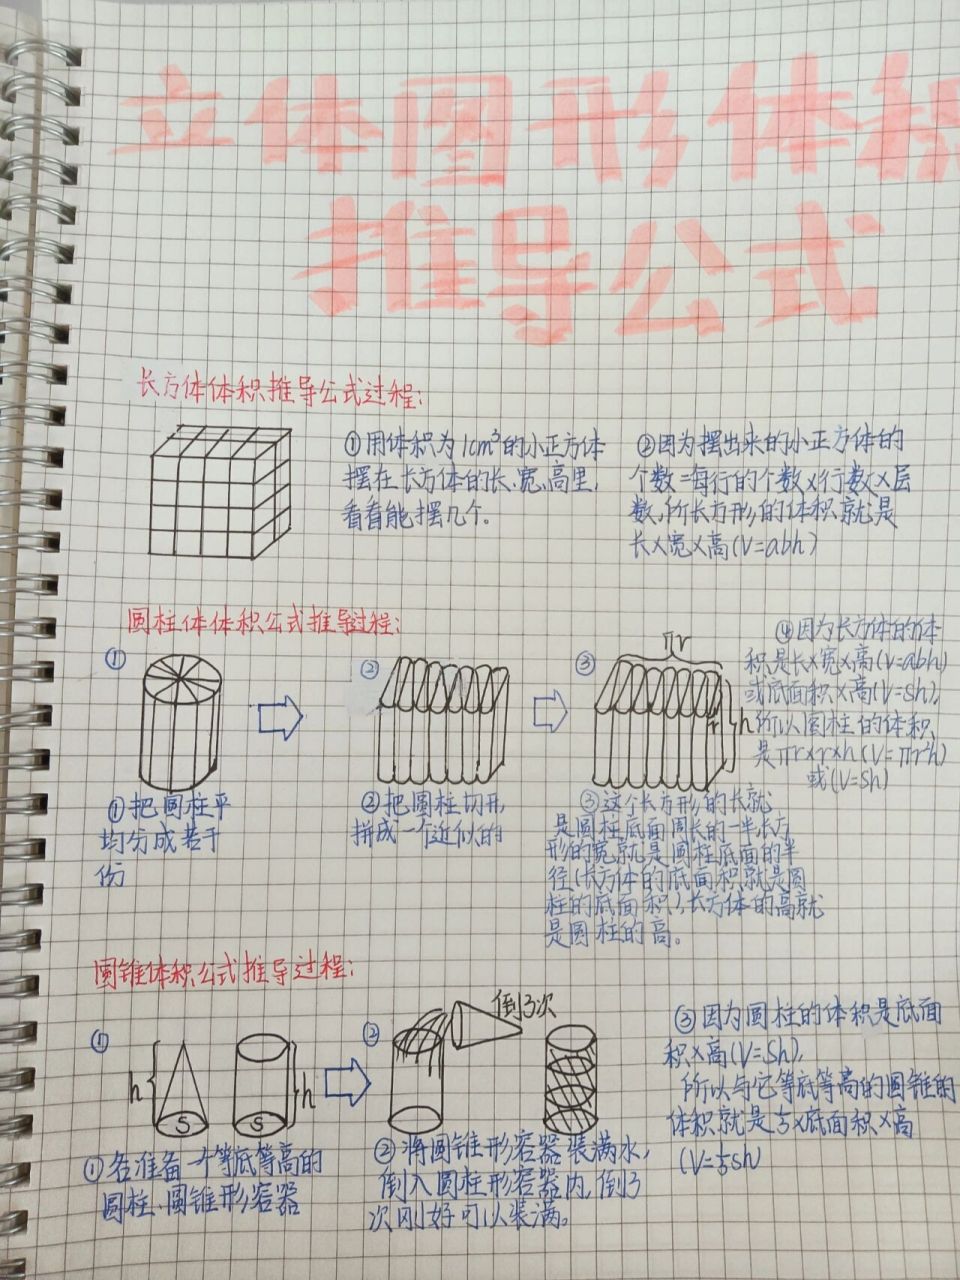 立体图形体积
推导公式
长方体体积推导公式过程:
①用体积为1cm³的小正方体
摆在长方体的长、宽、高里,
看看能摆几个。
②因为摆出来的小正方体的
个数=每行的个数×行数×层
数,所长方形的体积就是
长×宽×高(V=abh)
圆柱体体积公式推导过程:
①
②
③
πr
r
h
①把圆柱平
均分成若干
份
②把圆柱切开,
拼成一个近似的
③这个长方形的长就
是圆柱底面周长的一半,长方
形的宽就是圆柱底面的半
径(长方体的底面积就是圆
柱的底面积),长方体的高就
是圆柱的高。
④因为长方体的体
积是长×宽×高(V=abh)
或底面积×高(V=sh),
所以圆柱的体积
是πr×r×h(V=πr²h)
或(V=Sh)
圆锥体积公式推导过程:
①
h
S
S
h
②
倒3次
①各准备一个等底等高的
圆柱、圆锥形容器
②将圆锥形容器装满水,
倒入圆柱形容器内,倒3
次刚好可以装满。
③因为圆柱的体积是底面
积×高(V=Sh),
所以与它等底等高的圆锥的
体积就是⅓×底面积×高
(V=⅓sh)